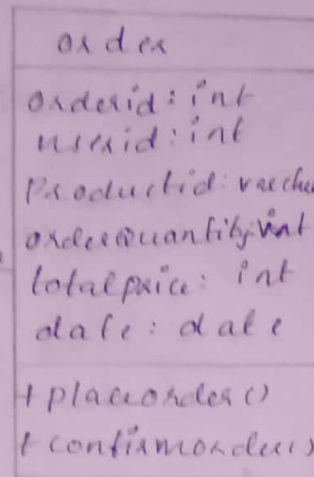 order
orderid: int
userid: int
Productid: varchar
orderQuantity: int
totalprice: int
date: date
+ placeorder()
+ confirmorder()